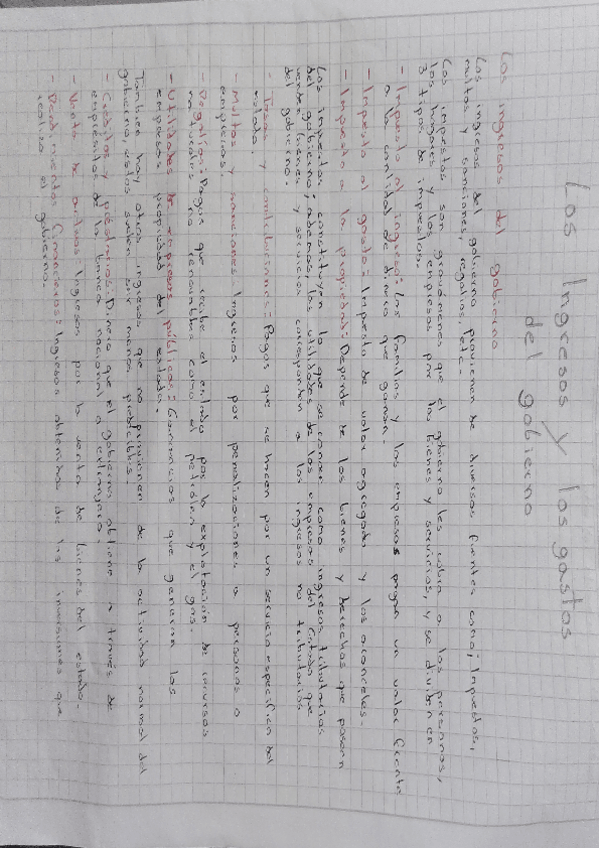 Los Ingresos y los gastos
del gobierno
Los ingresos del gobierno
Los ingresos del gobierno provienen de diversas fuentes como; Impuestos,
multas y sanciones, regalías, etc.
Los impuestos son gravámenes que el gobierno les cobra a las personas,
los hogares y las empresas por los bienes y servicios, y se dividen en
3 tipos de impuestos.
- Impuesto al ingreso: Las familias y las empresas pagan un valor frente
a la cantidad de dinero que ganan.
- Impuesto al gasto: Impuesto de valor agregado y los aranceles.
- Impuesto a la propiedad: Depende de los bienes y derechos que posean
Los impuestos constituyen lo que se conoce como ingresos tributarios
del gobierno; además las utilidades de las empresas del Estado que
vende bienes y servicios corresponden a los ingresos no tributarios
del gobierno.
- Tasas y contribuciones: Pagos que se hacen por un servicio específico del
estado.
- Multas y sanciones: Ingresos por penalizaciones a personas o
empresas.
- Regalías: Pagos que recibe el estado por la explotación de recursos
naturales no renovables como el petróleo y el gas.
- Utilidades de empresas públicas: Ganancias que generan las
empresas propiedad del estado.
También hay otros ingresos que no provienen de la actividad normal del
gobierno, estos suelen ser menos predecibles.
- Créditos y préstamos: Dinero que el gobierno obtiene a través de
empréstitos de la banca nacional o extranjera.
- Venta de activos: Ingresos por la venta de bienes del estado.
- Rendimientos financieros: Ingresos obtenidos de las inversiones que
realiza el gobierno.